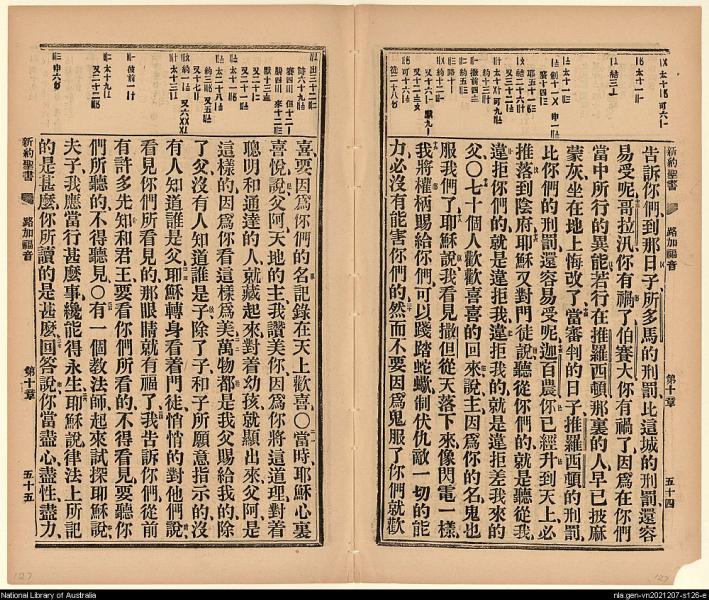 新約聖書 路加福音 第十章 五十四
告訴你們、到那日子、所多馬的刑罰、比這城的刑罰、還容
易受呢、哥拉汎、你有禍了、伯賽大、你有禍了、因爲在你們
當中所行的異能、若行在推羅西頓、那裏的人、早已披麻
蒙灰、坐在地上悔改了、當審判的日子、推羅西頓的刑罰、
比你們的刑罰、還容易受呢、迦百農、你已經升到天上、必
推落到陰府、耶穌又對門徒說、聽從你們的、就是聽從我、
違拒你們的、就是違拒我、違拒我的、就是違拒差我來的
父、○七十個人、歡歡喜喜的回來、說主、因爲你的名、鬼也
服我們了、耶穌說、我看見撒但從天落下來、像閃電一樣、
我將權柄賜給你們、可以踐踏蛇蠍、制伏仇敵一切的能
力、必沒有能害你們的、然而不要因爲鬼服了你們就歡
喜、要因爲你們的名、記錄在天上歡喜、○當時耶穌心裏
喜悅、說、父阿、天地的主、我讚美你、因爲你將這道理、對着
聰明和通達的人就藏起來、對着幼孩就顯出來、父阿、是
這樣的、因爲你看這樣爲美、萬物都是我父賜給我的、除
了父沒有人知道誰是子、除了子、和子所願意指示的、沒
有人知道誰是父、耶穌轉身看着門徒、悄悄的對他們說、
看見你們所看見的、那眼睛就有福了、我告訴你們、從前
有許多先知和君王、要看你們所看的、不得看見、要聽你
們所聽的、不得聽見、○有一個教法師、起來試探耶穌說、
夫子、我應當行甚麼事、纔能得永生、耶穌說、律法上所記
的是甚麼、你所讀的是甚麼、回答說、你當盡心、盡性、盡力、
新約聖書 路加福音 第十章 五十五
127
127
National Library of Australia
nla.gen-vn2021207-s126-e